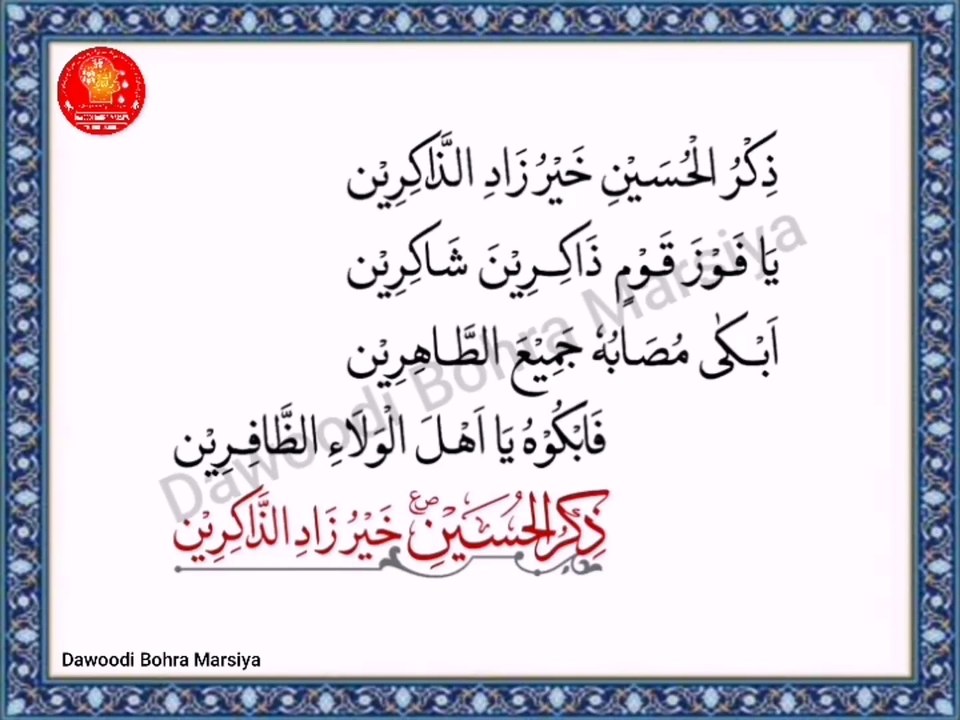 ذِكْرُ الْحُسَيْنِ خَيْرُ زَادِ الذَّاكِرِيْن
يَا فَوْزَ قَوْمٍ ذَاكِرِيْنَ شَاكِرِيْن
اَبْكٰى مُصَابُهٗ جَمِيْعَ الطَّاهِرِيْن
فَابْكُوْهُ يَا اَهْلَ الْوَلَاءِ الظَّافِرِيْن
ذِكْرُ الْحُسَيْنِ ؑص خَيْرُ زَادِ الذَّاكِرِيْن
Dawoodi Bohra Marsiya
Dawoodi Bohra Marsiya